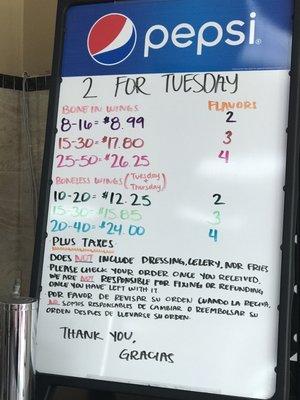 pepsi
2 FOR TUESDAY
BONE IN WINGS FLAVORS
8-16 = $8.99 2
15-30 = $17.80 3
25-50 = $26.25 4
BONELESS WINGS (Tuesday + Thursday)
10-20 = $12.25 2
15-30 = $15.85 3
20-40 = $24.00 4
PLUS TAXES
DOES NOT INCLUDE DRESSING, CELERY, NOR FRIES
PLEASE CHECK YOUR ORDER ONCE YOU RECEIVED.
WE ARE NOT RESPONSIBLE FOR FIXING OR REFUNDING
ONCE YOU HAVE LEFT WITH IT.
POR FAVOR DE REVISAR SU ORDEN CUANDO LA RECIVA.
NO SOMOS RESPONSABLES DE CAMBIAR O REEMBOLSAR SU
ORDEN DESPUES DE LLEVARSE SU ORDEN.
THANK YOU,
GRACIAS